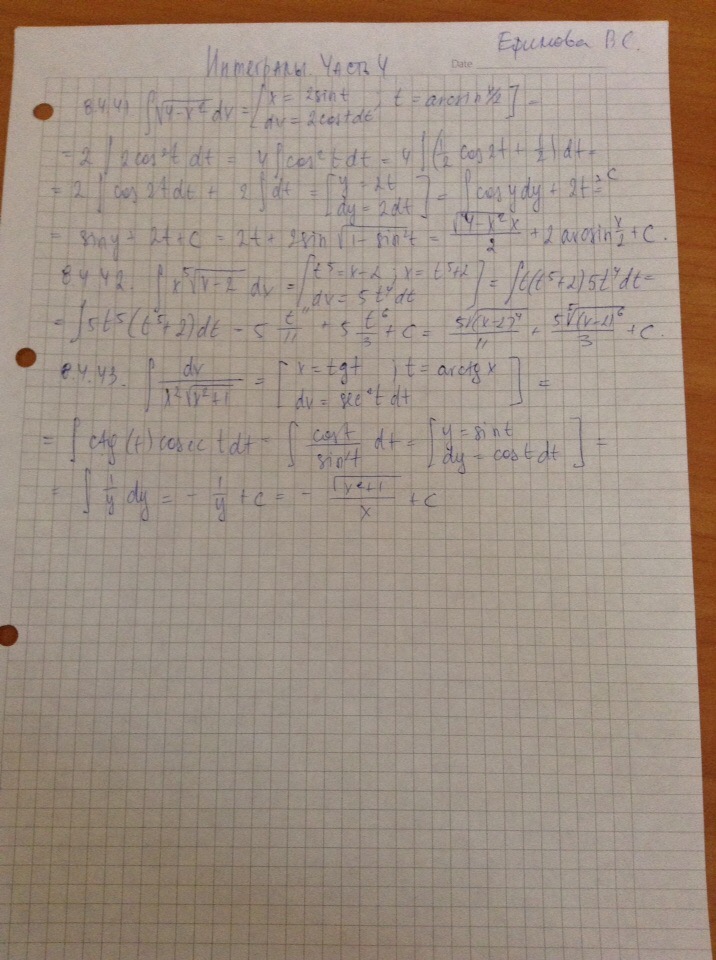 Ефимова В С.
Интегралы. Часть 4
Date
8.4.41. ∫√(4-x²) dx = [x = 2sin t ; t = arcsin x/2; dx = 2cos t dt] =
= 2 ∫ 2cos²t dt = 4 ∫ cos²t dt = 4 ∫ (1/2 cos 2t + 1/2) dt =
= 2 ∫ cos 2t dt + 2 ∫ dt = [y = 2t; dy = 2dt] = ∫ cos y dy + 2t + C =
= sin y + 2t + C = 2t + 2sin √(1-sin²t) = √(4-x²) x / 2 + 2 arcsin x/2 + C.
8.4.42. ∫ x ⁵√(x-2) dx = [t⁵ = x-2 ; x = t⁵+2; dx = 5t⁴dt] = ∫ t(t⁵+2) 5t⁴ dt =
= ∫ 5t⁵(t⁵+2) dt = 5 t¹¹/11 + 5 t⁶/3 + C = 5 ⁵√(x-2)¹¹ / 11 + 5 ⁵√(x-2)⁶ / 3 + C.
8.4.43. ∫ dx / (x²√(x²+1)) = [x = tg t ; t = arctg x; dx = sec²t dt] =
= ∫ ctg(t) cosec t dt = ∫ cos t / sin²t dt = [y = sin t; dy = cos t dt] =
= ∫ 1/y² dy = - 1/y + C = - √(x²+1) / x + C